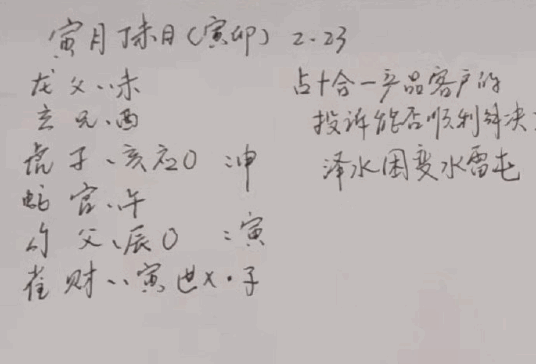 寅月丁未日(寅卯) 2.23
龙 父、、未
玄 兄、酉
虎 子、亥应O :申
蛇 官、、午
勾 父、辰O :寅
雀 财、、寅世X・子
占十合一产品客户的
投诉能否顺利解决:
泽水困变水雷屯